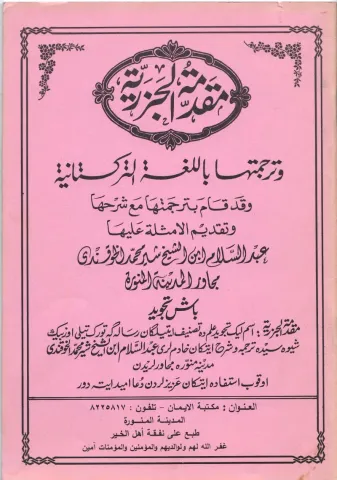 مقدمة الجزرية
وترجمتها باللغة التركستانية
وقد قام بترجمتها مع شرحها
وتقديم الامثلة عليها
عبد السلام ابن الشيخ شير محمد الخوقندى
مجاور المدينة المنورة
باش تجويد
مقدمة الجزرية : اسم ليك تجويد علم ده تصنيف ايتيلكان رساله گه تورك تيلى اوزبيك
شيوه سيده ترجمه و شرح ايتكان خادم لرى عبد السلام ابن الشيخ شير محمد خوقندى
مدينه منوره مجاور لريدن
اوقوب استفاده ايتكان عزيز لردن دعا اميد ايت دور
العنوان : مكتبة الايمان - تلفون : ٨٢٢٥٨١٧
المدينة المنورة
طبع على نفقة أهل الخير
غفر الله لهم ولوالديهم والمؤمنين والمؤمنات أمين